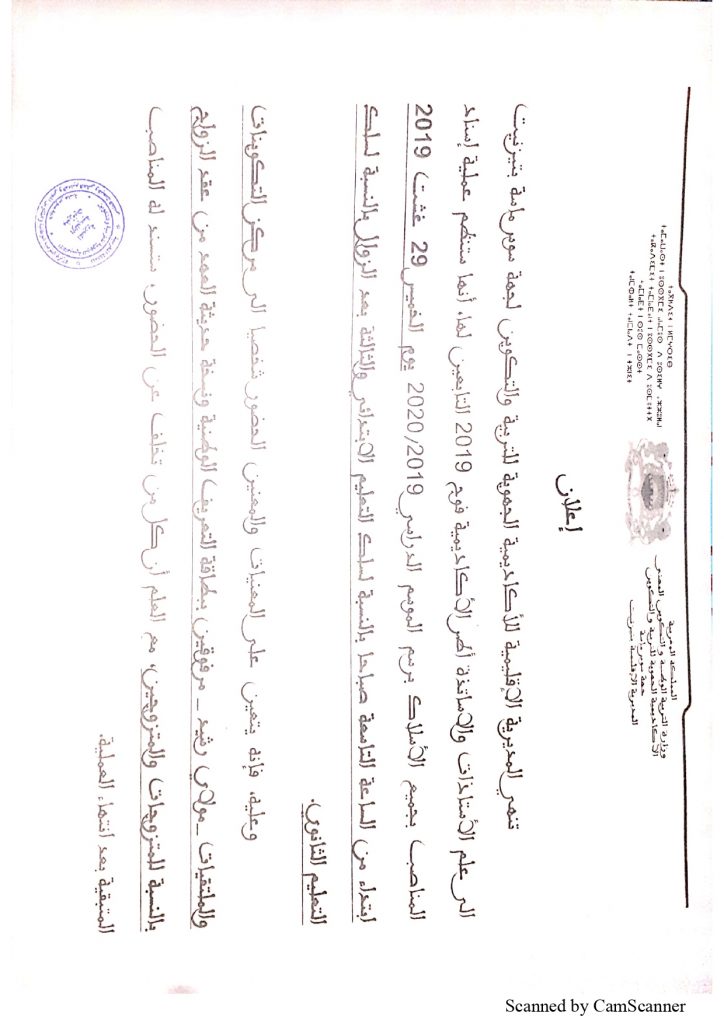 ⵜⴰⴳⵍⴷⵉⵜ ⵏ ⵍⵎⵖⵔⵉⴱ
المملكة المغربية
وزارة التربية الوطنية والتكوين المهني
الأكاديمية الجهوية للتربية والتكوين
جهة سوس ماسة
المديرية الإقليمية بتيزنيت
إعلان
تنهي المديرية الإقليمية للأكاديمية الجهوية للتربية والتكوين لجهة سوس ماسة بتيزنيت
الى علم الأستاذات والاساتذة أطر الأكاديمية فوج 2019 التابعين لها، أنها ستنظم عملية إسناد
المناصب بجميع الأسلاك برسم الموسم الدراسي 2020/2019 يوم الخميس 29 غشت 2019
ابتداء من الساعة التاسعة صباحا بالنسبة لسلك التعليم الابتدائي والثالثة بعد الزوال بالنسبة لسلك
التعليم الثانوي.
وعليه، فإنه يتعين على المعنيات والمعنين الحضور شخصيا الى مركز التكوينات
والملتقيات _مولاي رشيد _ مرفوقين ببطاقة التعريف الوطنية ونسخة حديثة العهد من عقد الزواج
بالنسبة للمتزوجات والمتزوجين، مع العلم أن كل من تخلف عن الحضور، ستسند له المناصب
المتبقية بعد انتهاء العملية.
Scanned by CamScanner